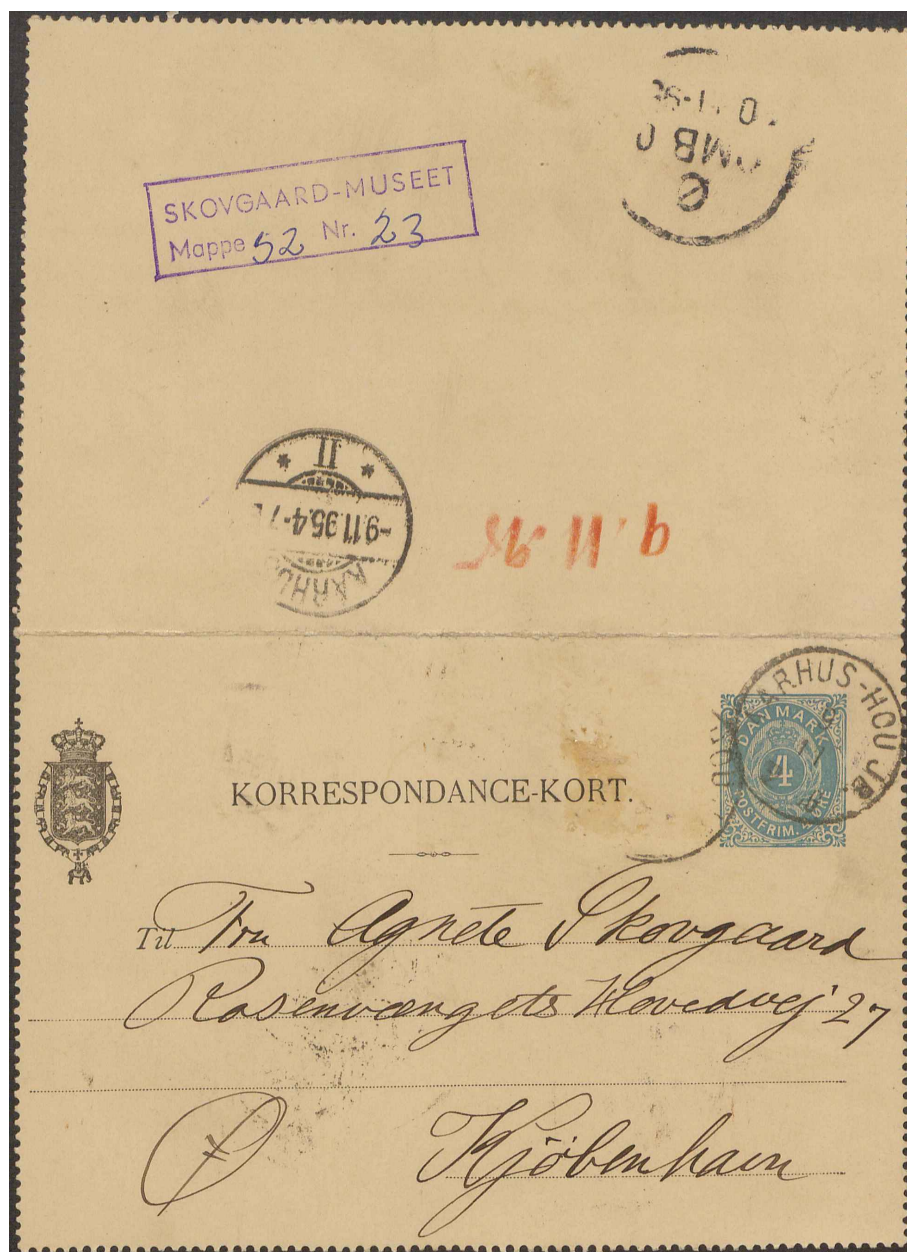 OMB
Ø
SKOVGAARD-MUSEET
Mappe 52 Nr. 23
II
-9.11.95.4-7
AARHUS
9.11.95
AARHUS-HOU JB.
9
11
DANMARK
4
POSTFRIM. 4 ØRE
KORRESPONDANCE-KORT.
Til Fru Agnete Skovgaard
Rosenvængets Hovedvej 27
Ø Kjöbenhavn